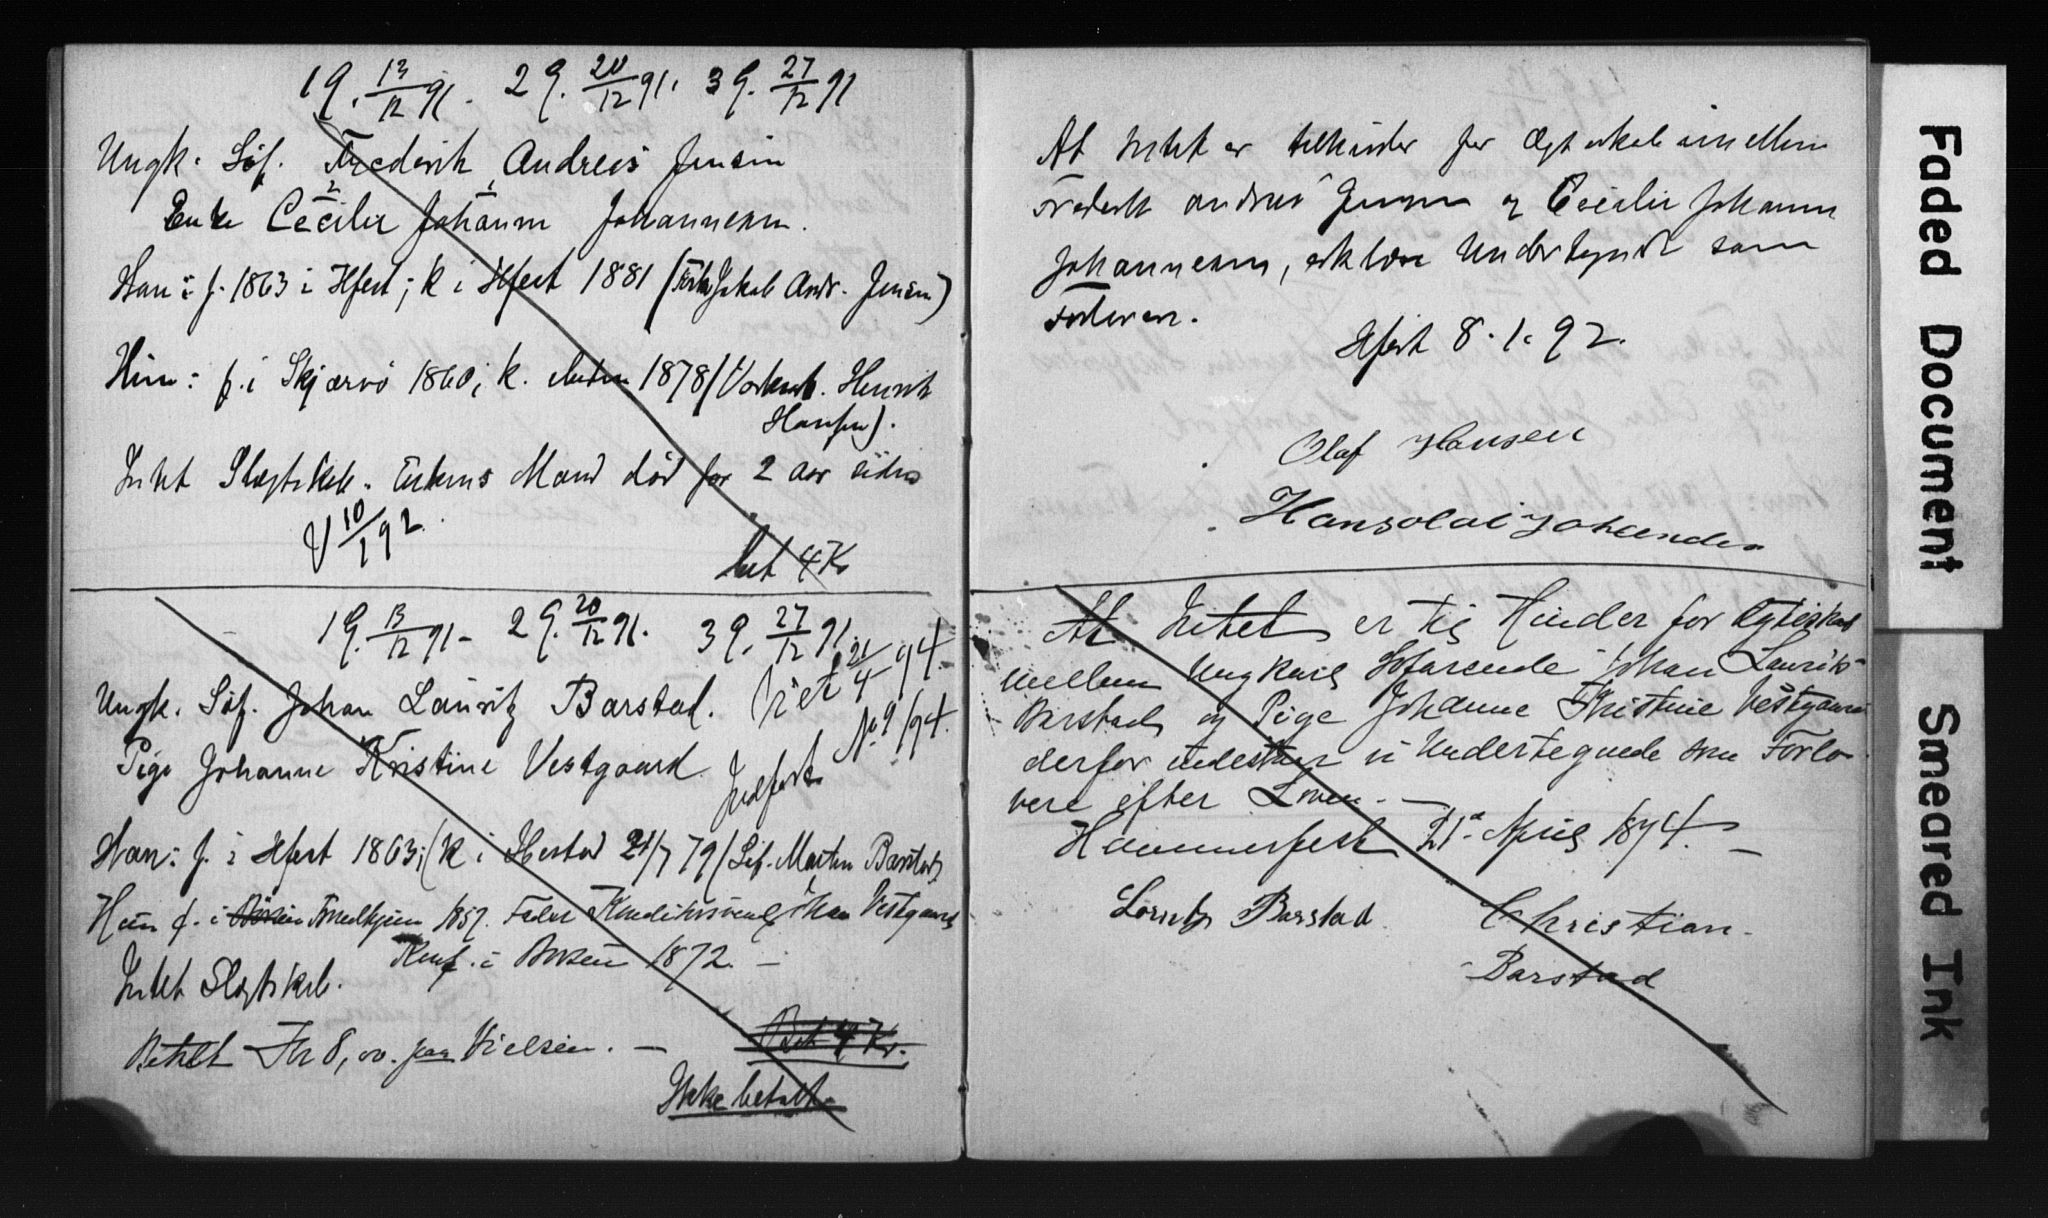 1 g. 13/12 91. 2 g. 20/12 91. 3 g. 27/12 91
Ungk. Søf. Frederik Andreas Jensen
Enke Cecilie Johanne Johannesen.
2 1
Han: f. 1863 i Hfest; k i Hfest 1881 (Jakob Andr. Jensen)
Hun: f. i Skjærvø 1860; k. 1878 (Henrik
Hansen).
Intet Slægtskab. Enkens Mand død for 2 aar siden
V 10/1 92.
bet 4 Kr
1 g. 13/12 91 - 2 g. 20/12 91. 3 g. 27/12 91.
Viet 21/4 94.
Ungk. Søf. Johan Lauritz Barstad.
No 9/94.
Pige Johanne Kristine Vestgaard
Indført
Han: f. i Hfest 1863; (k i 21/7 79 (Søf. Martin Barstad)
Hun f. i 1857. Fader Johan Vestgaard
Konf. i 1872. -
Intet Slægtskab.
Betalt Kr 8,00. paa Vielsen. -
Bet 4 Kr.
Ikke betalt.
At Intet er til hinder for Ægteskab imellem
Frederik Andreas Jensen og Cecilie Johanne
Johannesen, erklære Undertegnede som
Forlovere.
Hfest 8.1.92.
Olaf Hansen
Hansolai
At Intet er til Hinder for Ægteskab
mellem Ungkarl Søfarende Johan Lauritz
Barstad og Pige Johanne Kristine Vestgaard
derfor indestaar vi Undertegnede som Forlo-
vere efter Loven. -
Hammerfest 21de April 1894. -
Lorentz Barstad. Christian
Barstad
Faded Document
Smeared Ink